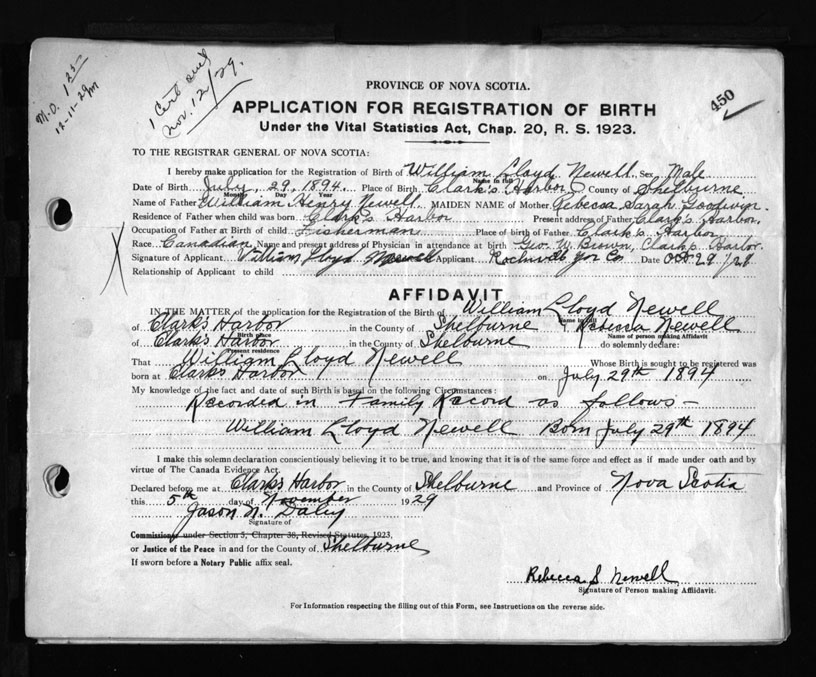 M.O. 1.25
12-11-29
1 Cert
Nov. 12/29.
450
PROVINCE OF NOVA SCOTIA.
APPLICATION FOR REGISTRATION OF BIRTH
Under the Vital Statistics Act, Chap. 20, R. S. 1923.
TO THE REGISTRAR GENERAL OF NOVA SCOTIA:
I hereby make application for the Registration of Birth of William Lloyd Newell Sex Male
Name in full
Date of Birth July, 29, 1894. Place of Birth Clark's Harbor County of Shelburne
Month Day Year
Name of Father William Henry Newell. MAIDEN NAME of Mother Rebecca Sarah Goodwin.
Residence of Father when child was born Clark's Harbor Present address of Father Clark's Harbor.
Occupation of Father at Birth of child Fisherman Place of birth of Father Clark's Harbor
Race Canadian Name and present address of Physician in attendance at birth Geo. W. Brown, Clark's Harbor.
Signature of Applicant William Lloyd Newell Applicant Date Oct 29/29
Relationship of Applicant to child
AFFIDAVIT
IN THE MATTER of the application for the Registration of the Birth of William Lloyd Newell
Name in full
of Clarks Harbor in the County of Shelburne & Rebecca Newell
Birth place Name of person making Affidavit
of Clarks Harbor in the County of Shelburne do solemnly declare:
Present residence
That William Lloyd Newell Whose Birth is sought to be registered was
born at Clarks Harbor on July 29th 1894
My knowledge of the fact and date of such Birth is based on the following Circumstances:
Recorded in Family Record as follows -
William Lloyd Newell Born July 29th 1894
I make this solemn declaration conscientiously believing it to be true, and knowing that it is of the same force and effect as if made under oath and by
virtue of The Canada Evidence Act.
Declared before me at Clarks Harbor in the County of Shelburne and Province of Nova Scotia
this 5th day of November 1929
Jason N. Daley
Signature of
Commissioner under Section 5, Chapter 38, Revised Statutes, 1923,
or Justice of the Peace in and for the County of Shelburne
If sworn before a Notary Public affix seal.
Rebecca S Newell
Signature of Person making Affidavit.
For Information respecting the filling out of this Form, see Instructions on the reverse side.